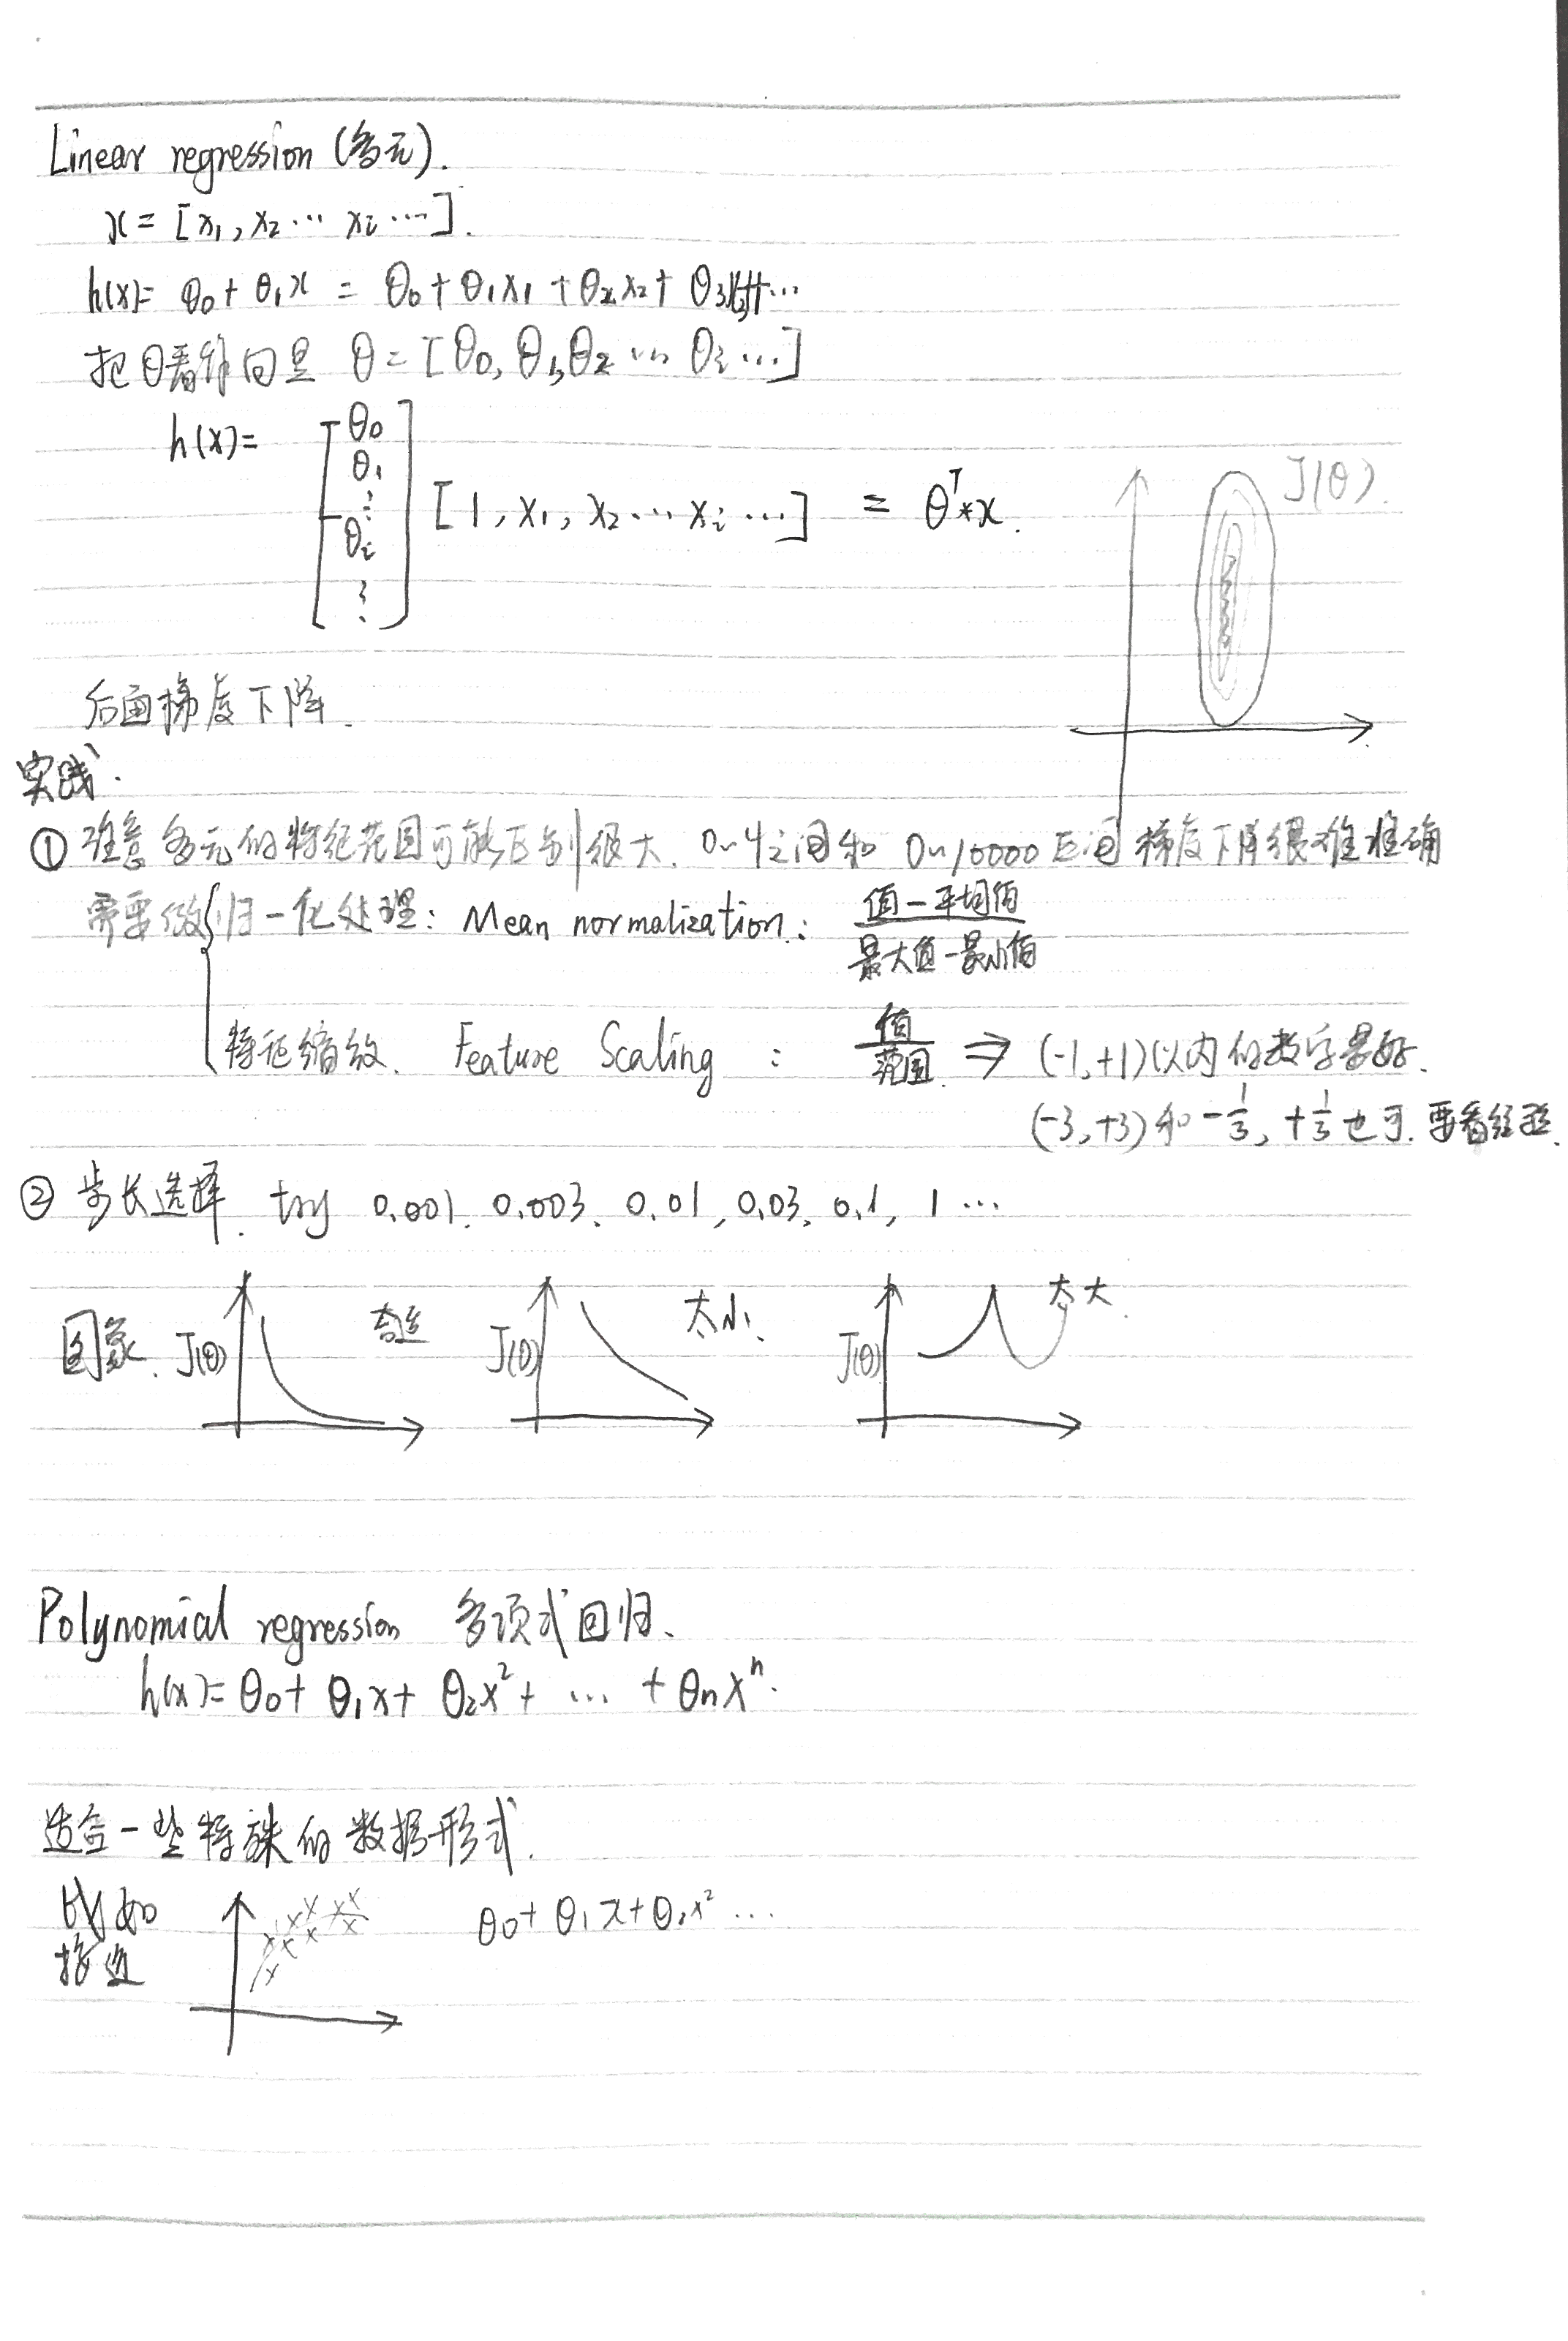 Linear regression (多元).
x = [x₁, x₂ ··· xᵢ ···].
h(x)= θ₀ + θ₁x = θ₀ + θ₁x₁ + θ₂x₂ + θ₃x₃+···
把θ看作向量 θ = [θ₀, θ₁, θ₂ ··· θᵢ ···]
h(x)= [θ₀ θ₁ ⋮ θᵢ ⋮] [1, x₁, x₂ ··· xᵢ ···] = θᵀ*x.
J(θ).
后面梯度下降.
实践.
① 注意多元的特征范围可能区别很大. 0~4之间和 0~10000 区间 梯度下降很难准确
需要做{归一化处理: Mean normalization: 值-平均值 / 最大值-最小值
特征缩放. Feature Scaling : 值 / 范围 ⇒ (-1,+1)以内的数字最好.
(-3,+3)和 -1/3, +1/3 也可. 要看经验.
② 步长选择. try 0.001. 0.003. 0.01, 0.03. 0.1, 1 ···
图象. J(θ) 合适 J(θ) 太小. J(θ) 太大.
Polynomial regression 多项式回归.
h(x)= θ₀+ θ₁x+ θ₂x²+ ··· + θₙxⁿ.
适合一些特殊的数据形式.
比如 θ₀+ θ₁x+θ₂x² ···
接近